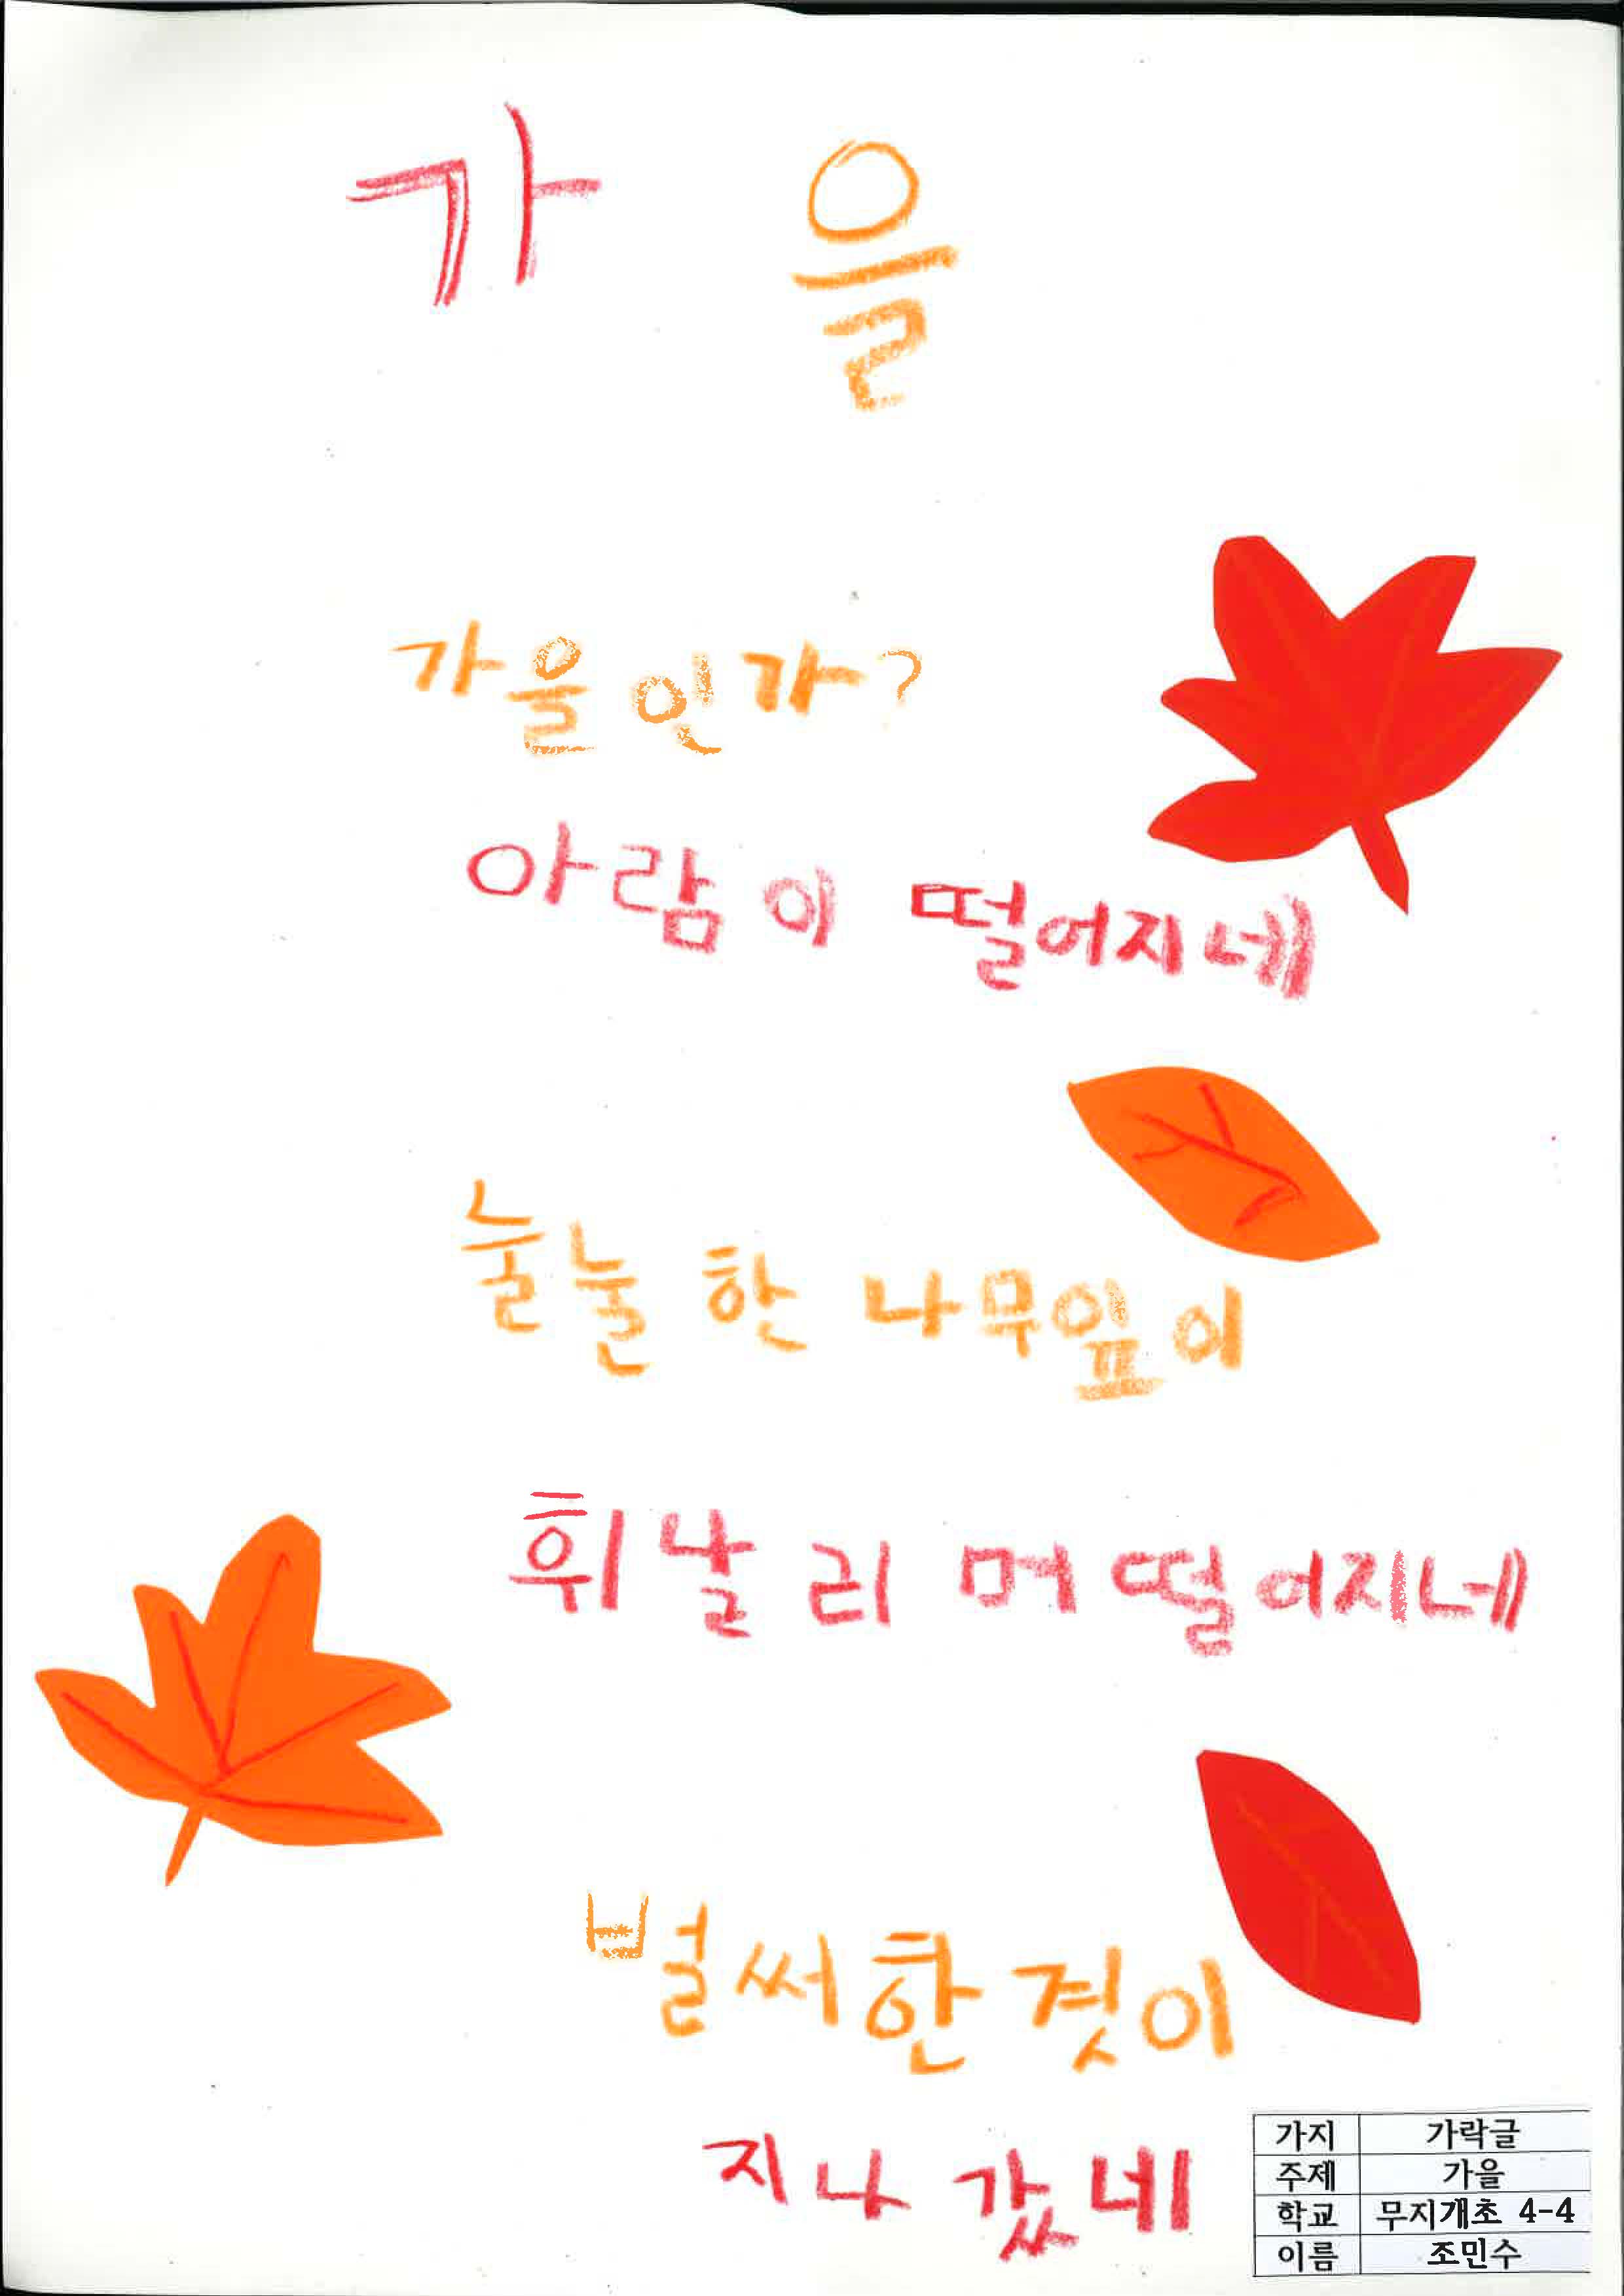 가을
가을인가?
아람이 떨어지네
눌눌한 나무잎이
휘날리머 떨어지네
벌써 한 젓이
지나갔네
가지 가락글
주제 가을
학교 무지개초 4-4
이름 조민수